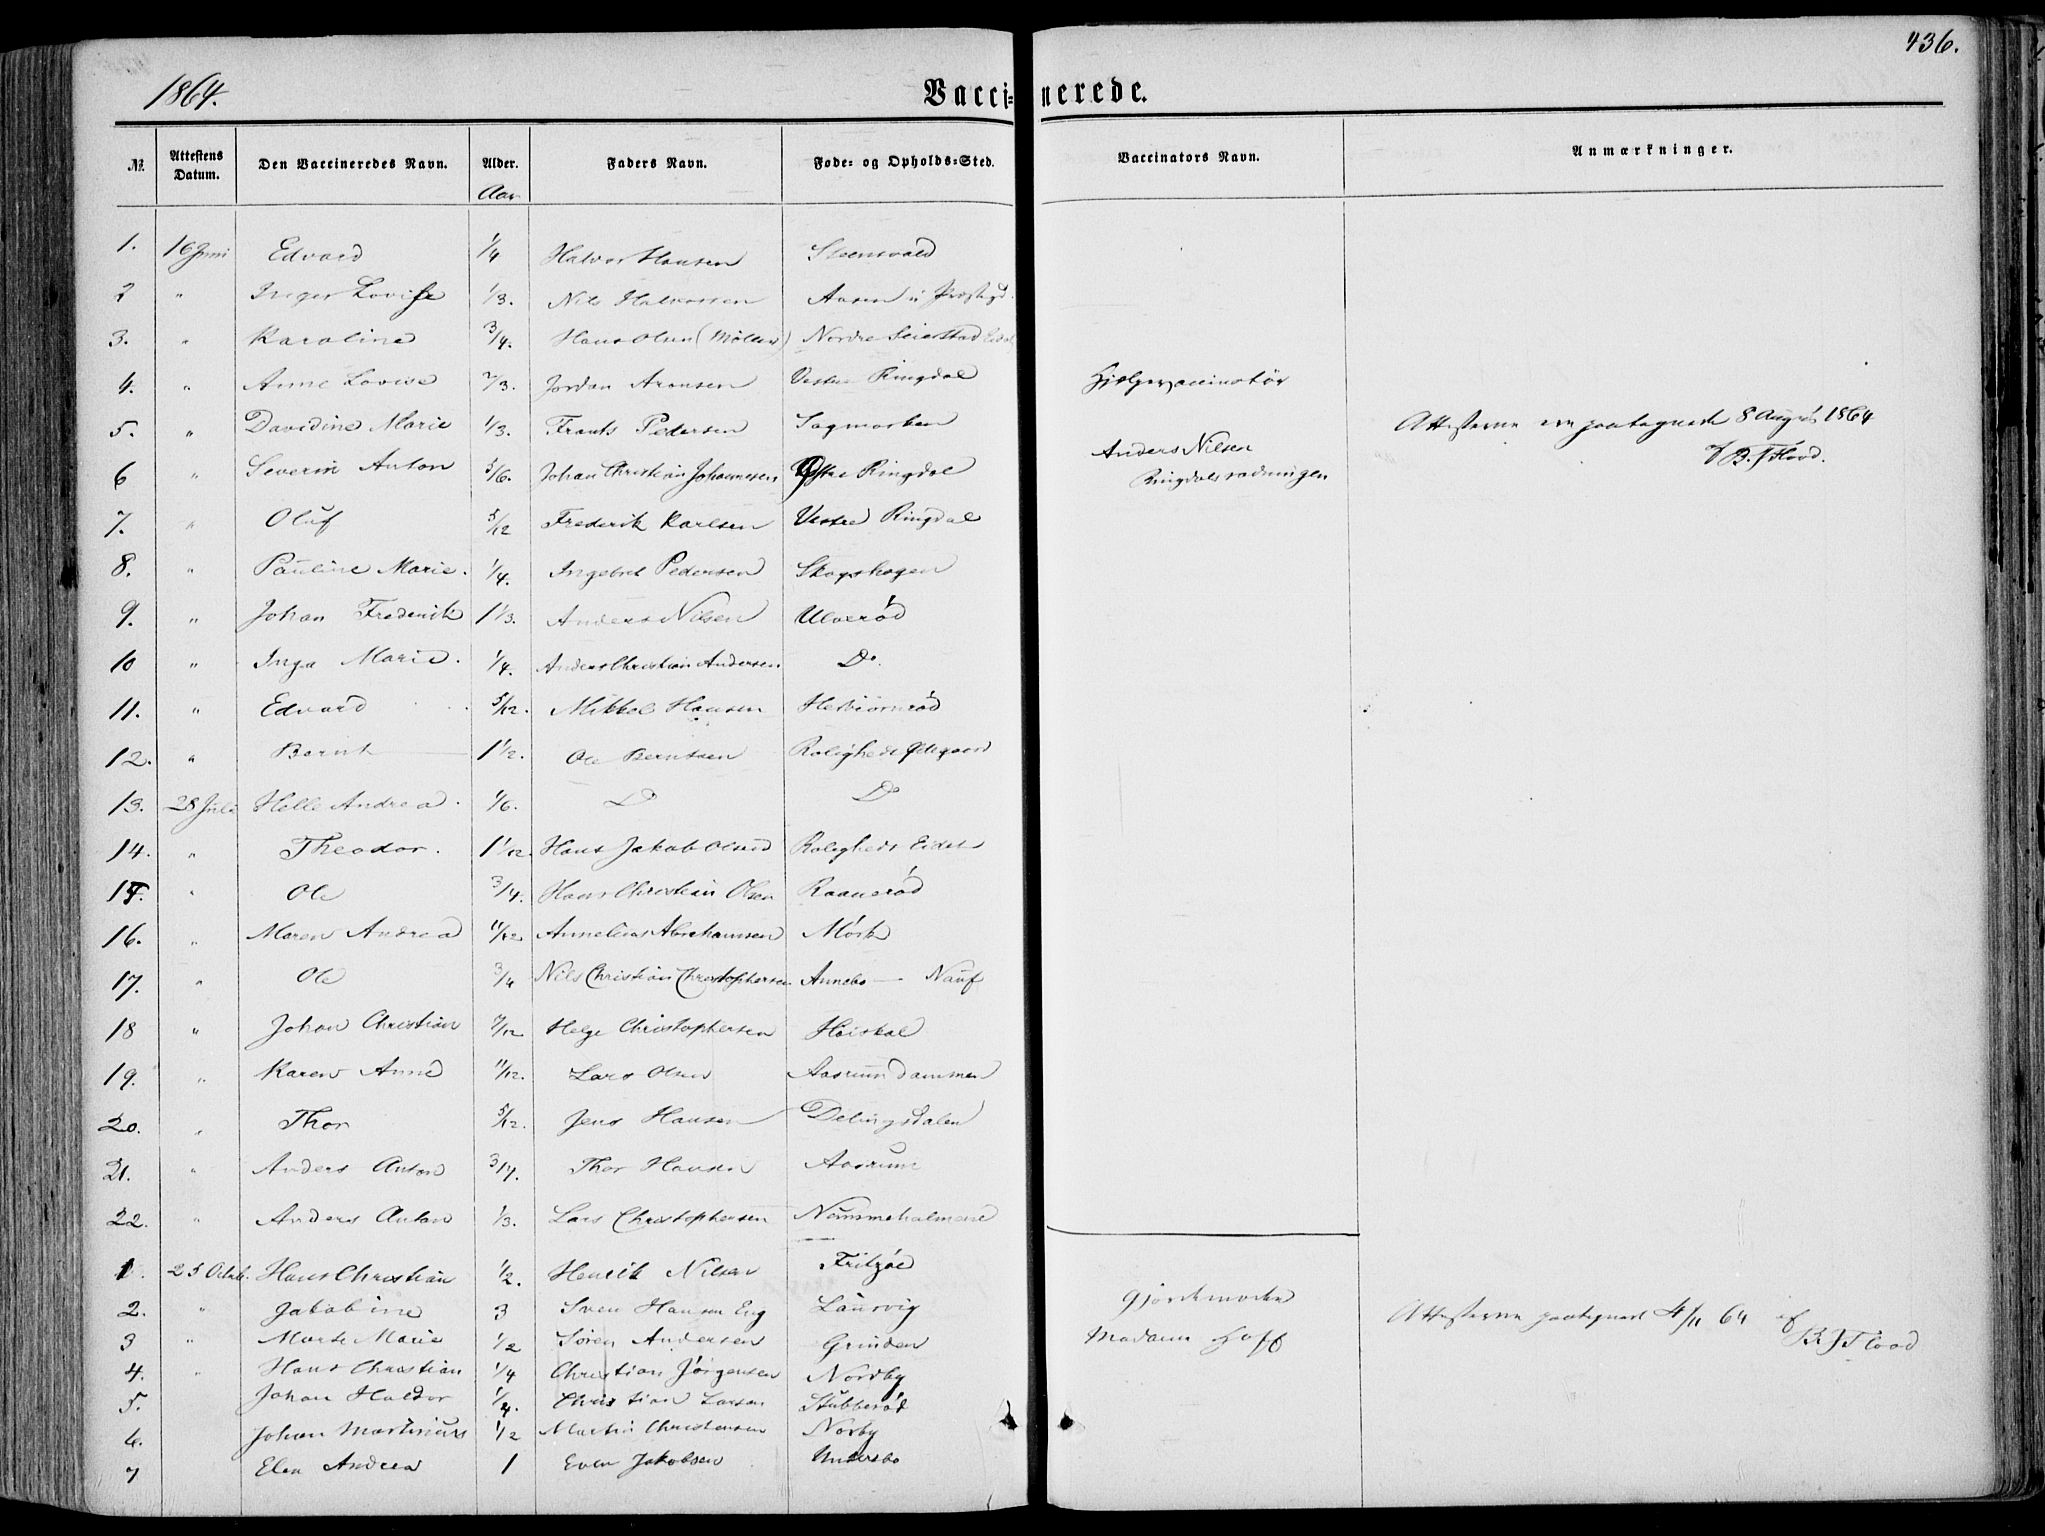 436.
1864.
Vaccinerede.
№ Attestens Datum. Den Vaccineredes Navn. Alder. Faders Navn. Føde- og Opholds-Sted. Vaccinators Navn. Anmærkninger.
Aar
1. 16 Juni Edvard 1/4 Halvor Hansen Steensvald
2 " Inger Lovise 1/3. Nils Halvorsen Aasen
3. " Karoline 3/4. Hans Olsen (Møller) Nordre Seierstad
4. " Anne Lovise 2/3. Jordan Aronsen Vestre Ringdal Hjelpevaccinatör
5. " Davidine Marie 1/3. Frants Pedersen Sagmarken Attesterne ere paategnede 8 August 1864
6 " Severin Anton 5/6. Johan Christian Johannesen Østre Ringdal Anders Nilsen af B. J Flood.
Ringdals
7. " Oluf 5/12 Frederik Karlsen Vestre Ringdal
8. " Pauline Marie. 1/4. Ingebret Pedersen Skogshagen
9. " Johan Frederik 1 1/3. Anders Nilsen Ulverød
10 " Inga Marie. 1/4. Anders Christian Andersen Do.
11. " Edvard 5/12. Mikkel Hansen Hesbiörnröd
12. " Bernt 1 1/2. Ole Berntsen Roligheds Ødegaard
13. 28 Juli Helle Andrea. 1/6. Do Do
14. " Theodor. 1 1/12. Hans Jakob Olsen Roligheds Eidet
15. " Ole 3/4. Hans Christian Olsen Raanerød
16. " Maren Andrea 11/12 Annelius Abrahamsen Mörk
17. " Ole 3/4 Nils Christian Christophersen Annebo — Nauf
18 " Johan Christian 7/12 Helge Christophersen Höiskal
19. " Karen Anne 11/12. Lars Olsen Aasrumdammen
20. " Thor 5/12. Jens Hansen Delingsdalen
21. " Anders Anton 3/4. Thor Hansen Aasrum
22. " Anders Anton 1/3. Lars Christophersen Nummeholmene
1. 25 Octob. Hans Christian 1/2. Henrik Nilsen Fritzöe
2. " Jakobine 3 Sven Hansen Eng Laurvig Gjordemoder Attesterne paategnede 4/11 64 af
3 " Marte Marie 1/2 Sören Andersen Grinden Madame Hoff B J Flood
4. " Hans Christian 1/4 Christian Jörgensen Nordby
5. Johan Haldor 1/4. Christian Larsen Stubberöd
6. Johan Martinius 1/2 Martin Christensen Norby
7 Elen Andrea 1 Even Jakobsen Undersbo